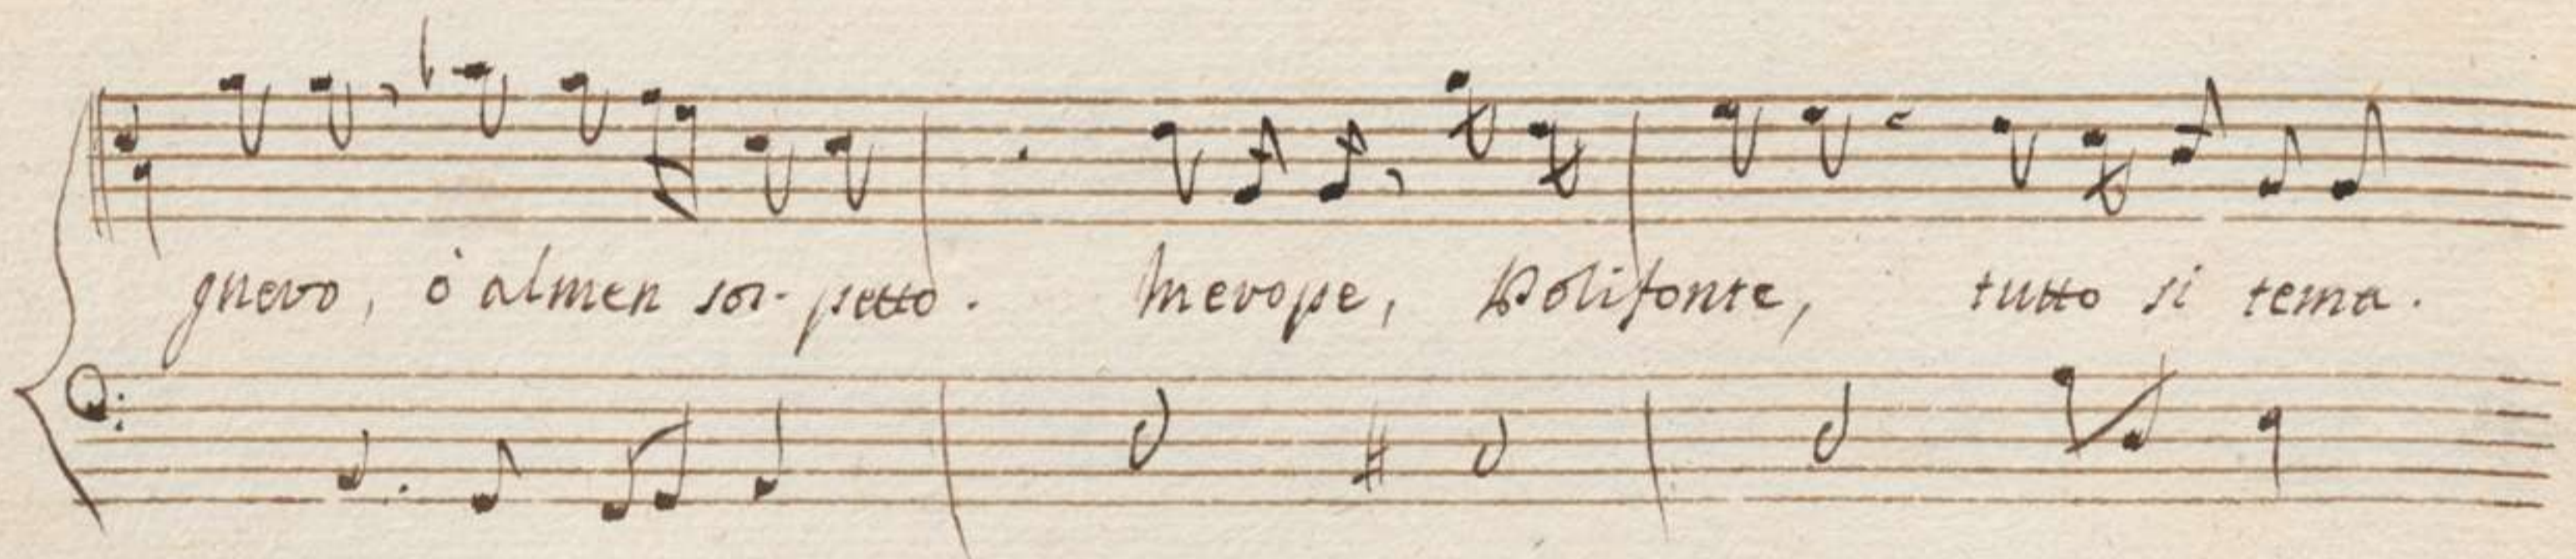 gnero, ò almen sos-petto. Merope, Polifonte, tutto si tema.